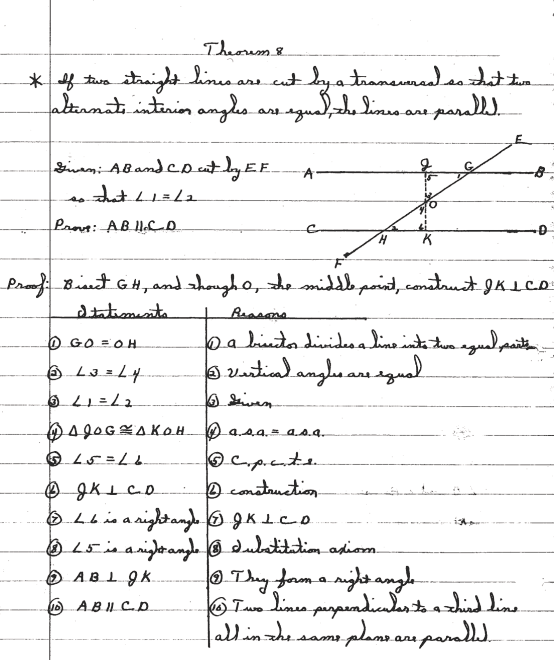 Theorem 8
* If two straight lines are cut by a transversal so that two
alternate interior angles are equal, the lines are parallel.
Given: AB and CD cut by EF
so that ∠1 = ∠2
Prove: AB ∥ CD
E
A J G B
5 1
3
O
4
C H 2 6 K D
F
Proof: Bisect GH, and though O, the middle point, construct JK ⊥ CD
Statements Reasons
① GO = OH ① a bisector divides a line into two equal parts
② ∠3 = ∠4 ② Vertical angles are equal
③ ∠1 = ∠2 ③ Given
④ △JOG ≅ △KOH ④ a.s.a. = a.s.a.
⑤ ∠5 = ∠6 ⑤ C.p.c.t.e.
⑥ JK ⊥ CD ⑥ construction
⑦ ∠6 is a right angle ⑦ JK ⊥ CD
⑧ ∠5 is a right angle ⑧ Substitution axiom
⑨ AB ⊥ JK ⑨ They form a right angle
⑩ AB ∥ CD ⑩ Two lines perpendicular to a third line
all in the same plane are parallel.